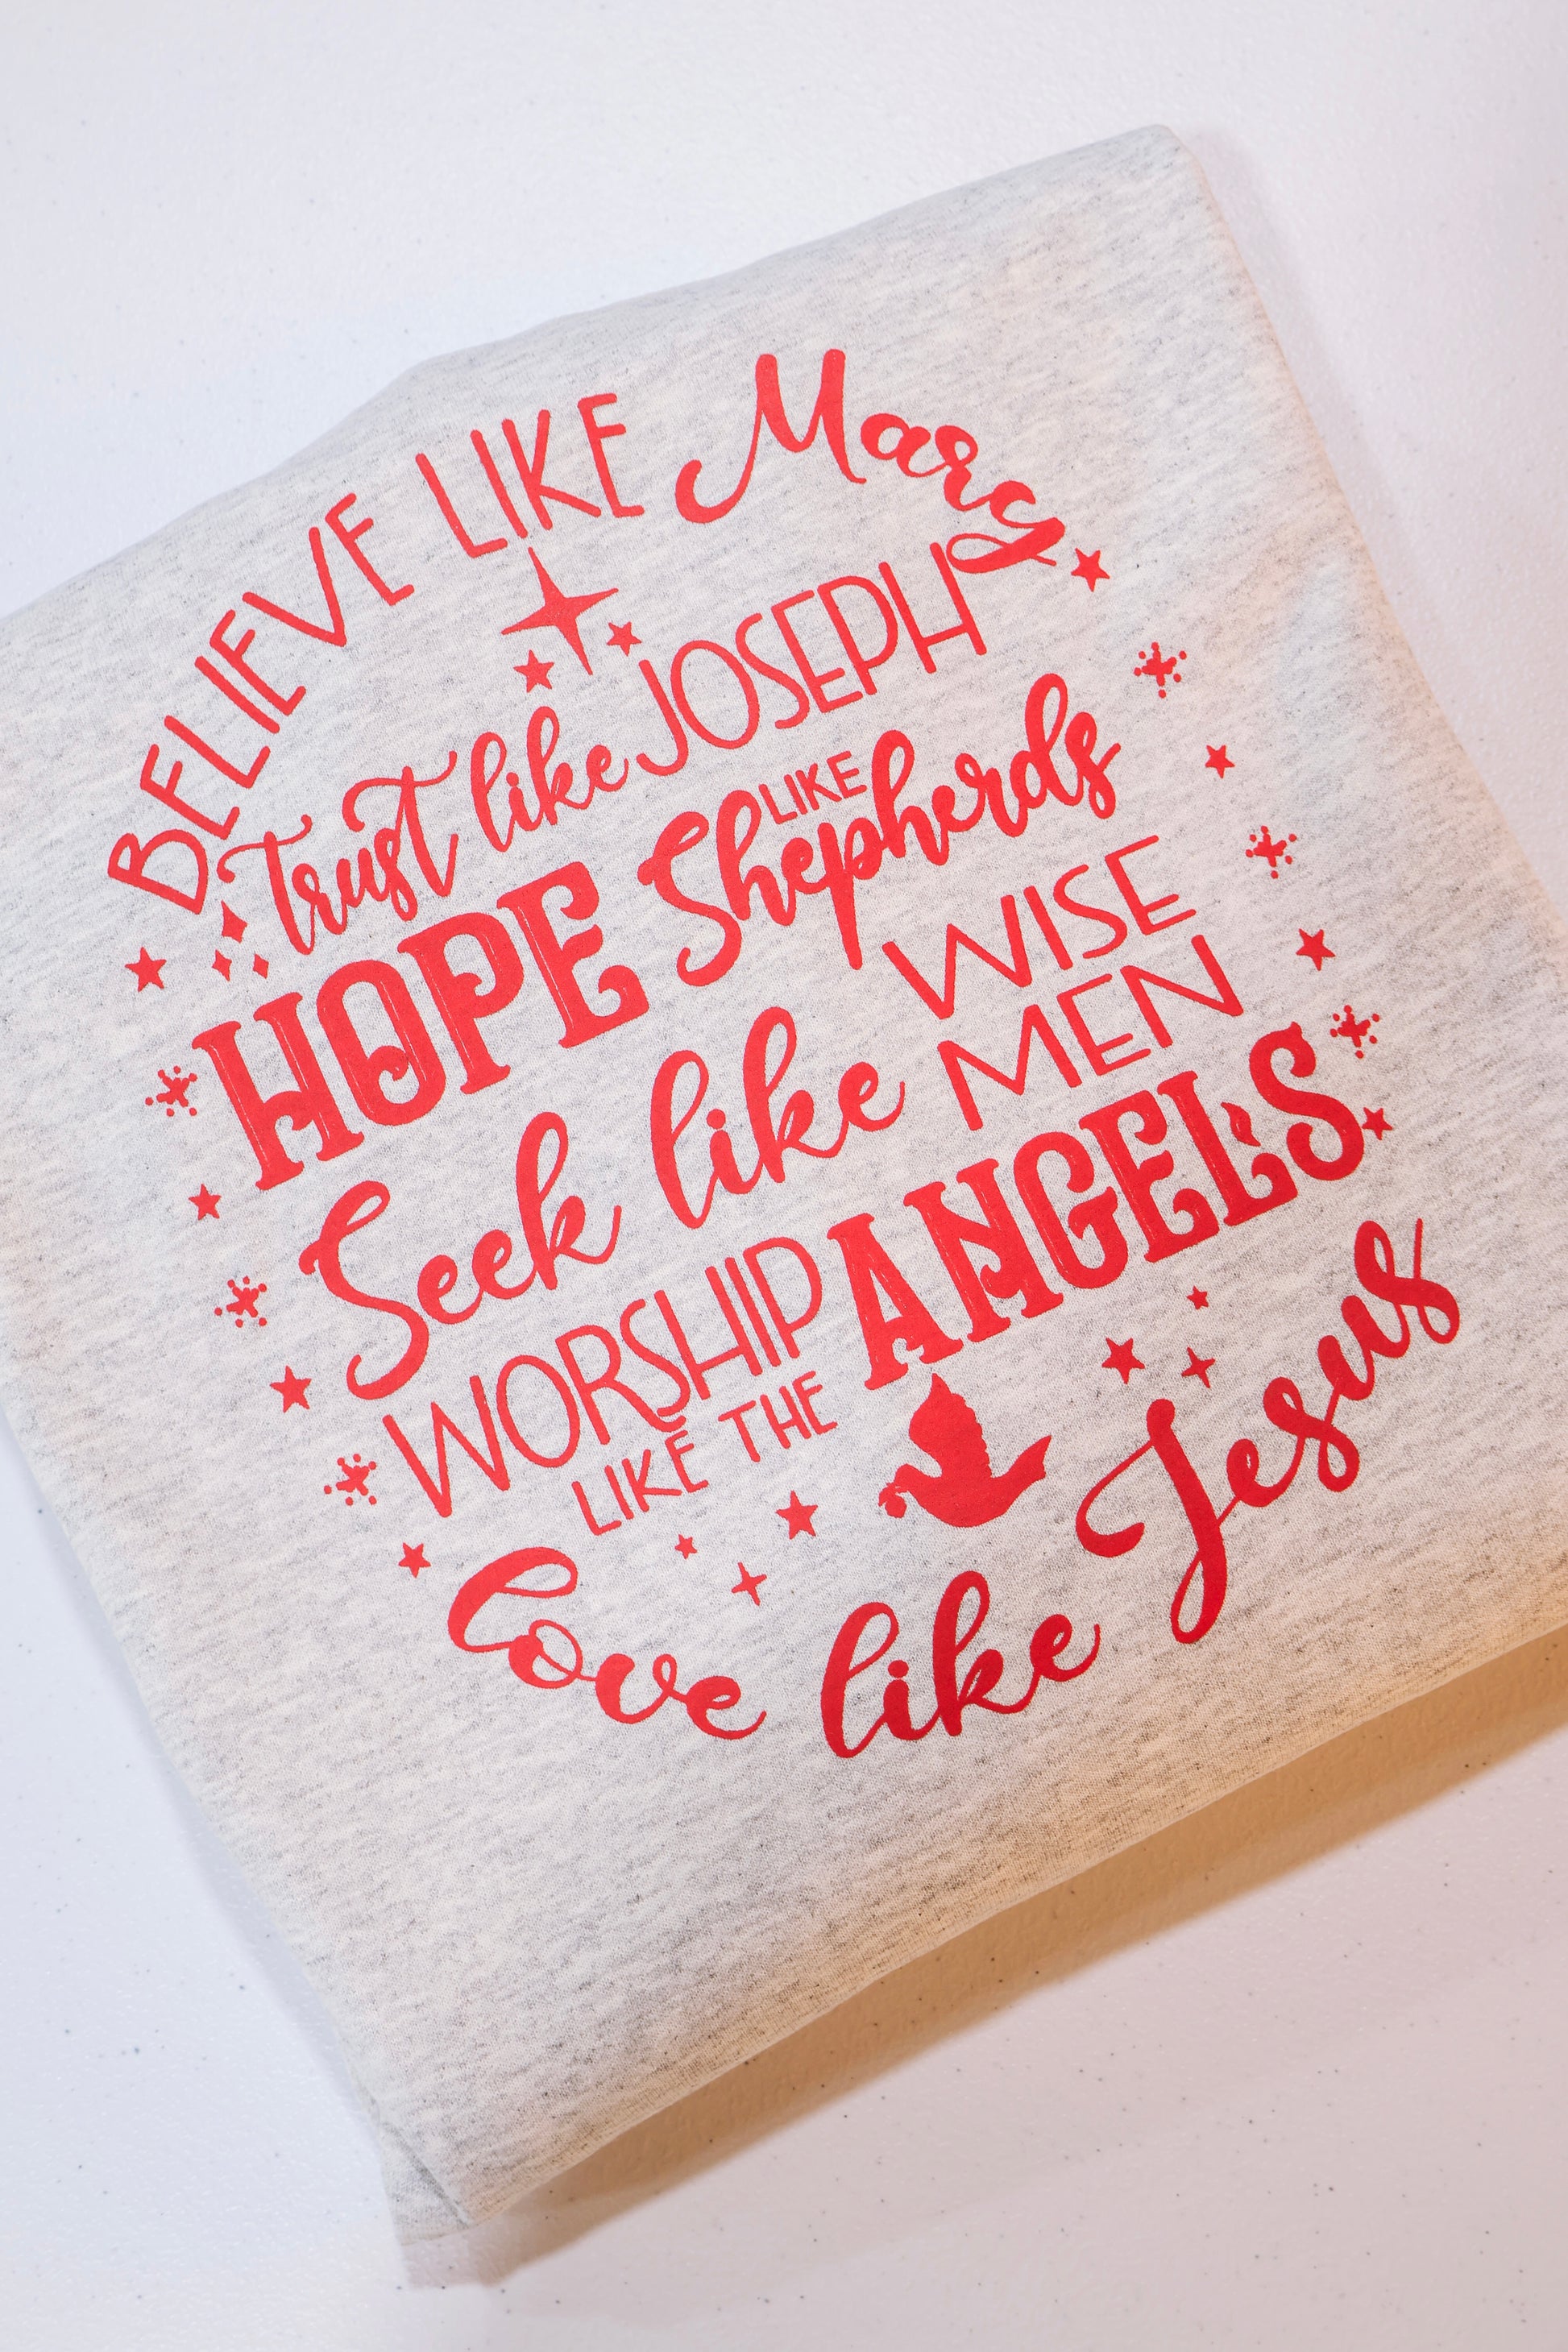 BELIEVE LIKE Mary
trust like JOSEPH
HOPE LIKE Shepherds
Seek like WISE MEN
WORSHIP LIKE THE ANGELS
love like Jesus